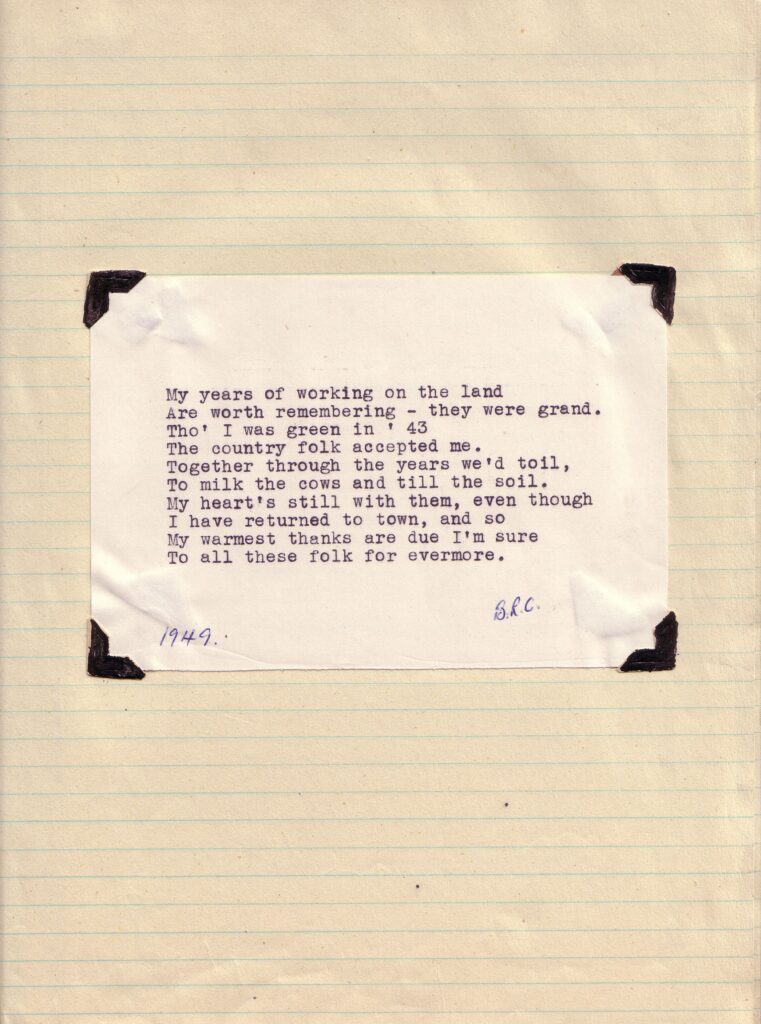 My years of working on the land
Are worth remembering - they were grand.
Tho' I was green in ' 43
The country folk accepted me.
Together through the years we'd toil,
To milk the cows and till the soil.
My heart's still with them, even though
I have returned to town, and so
My warmest thanks are due I'm sure
To all these folk for evermore.
B.R.C.
1949.